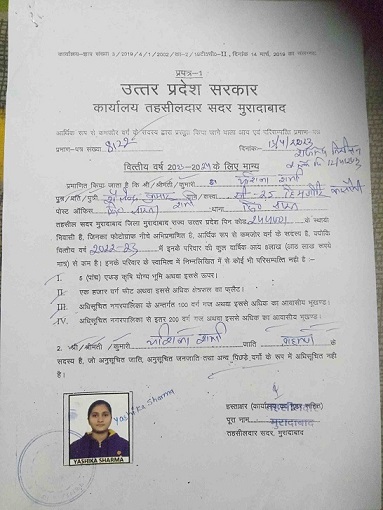 कार्यालय-ज्ञाप संख्या 3/2019/4/1/2002/का-2/19टी०सी०-II, दिनांक 14 मार्च, 2019 का संलग्नक
प्रपत्र-1
उत्तर प्रदेश सरकार
कार्यालय तहसीलदार सदर मुरादाबाद
आर्थिक रूप से कमजोर वर्ग के सदस्य द्वारा प्रस्तुत किया जाने वाला आय एवं परिसम्पत्ति प्रमाण-पत्र
प्रमाण-पत्र संख्या 8122 दिनांक- 13/4/2023
वित्तीय वर्ष 2023-2024 के लिए मान्य
प्रमाणित किया जाता है कि श्री/श्रीमती/कुमारी
पुत्र/पति/पुत्री कुमार शर्मा
पोस्ट ऑफिस थाना
तहसील सदर मुरादाबाद जिला मुरादाबाद राज्य उत्तर प्रदेश पिन कोड 244001 के स्थायी
निवासी है, जिनका फोटोग्राफ नीचे अभिप्रमाणित है, आर्थिक रूप से कमजोर वर्ग के सदस्य है, क्योंकि
वित्तीय वर्ष 2022-23 में इनके परिवार की कुल वार्षिक आय 8लाख (आठ लाख रूपये
मात्र) से कम है। इनके परिवार के स्वामित्व में निम्नलिखित में से कोई भी परिसम्पत्ति नहीं है:-
I. 5 (पांच) एकड़ कृषि योग्य भूमि अथवा इससे ऊपर।
II. एक हजार वर्ग फीट अथवा इससे अधिक क्षेत्रफल का फ्लैट।
III. अधिसूचित नगरपालिका के अन्तर्गत 100 वर्ग गज अथवा इससे अधिक का आवासीय भूखण्ड।
IV. अधिसूचित नगरपालिका से इतर 200 वर्ग गज अथवा इससे अधिक का आवासीय भूखण्ड।
2. श्री/श्रीमती/कुमारी शर्मा जाति ब्राह्मण के
सदस्य है, जो अनुसूचित जाति, अनुसूचित जनजाति तथा अन्य पिछड़े वर्गों के रूप में अधिसूचित नहीं
है।
Yashika Sharma
YASHIKA SHARMA
हस्ताक्षर (कार्यालय
पूरा नाम मुरादाबाद
तहसीलदार सदर, मुरादाबाद